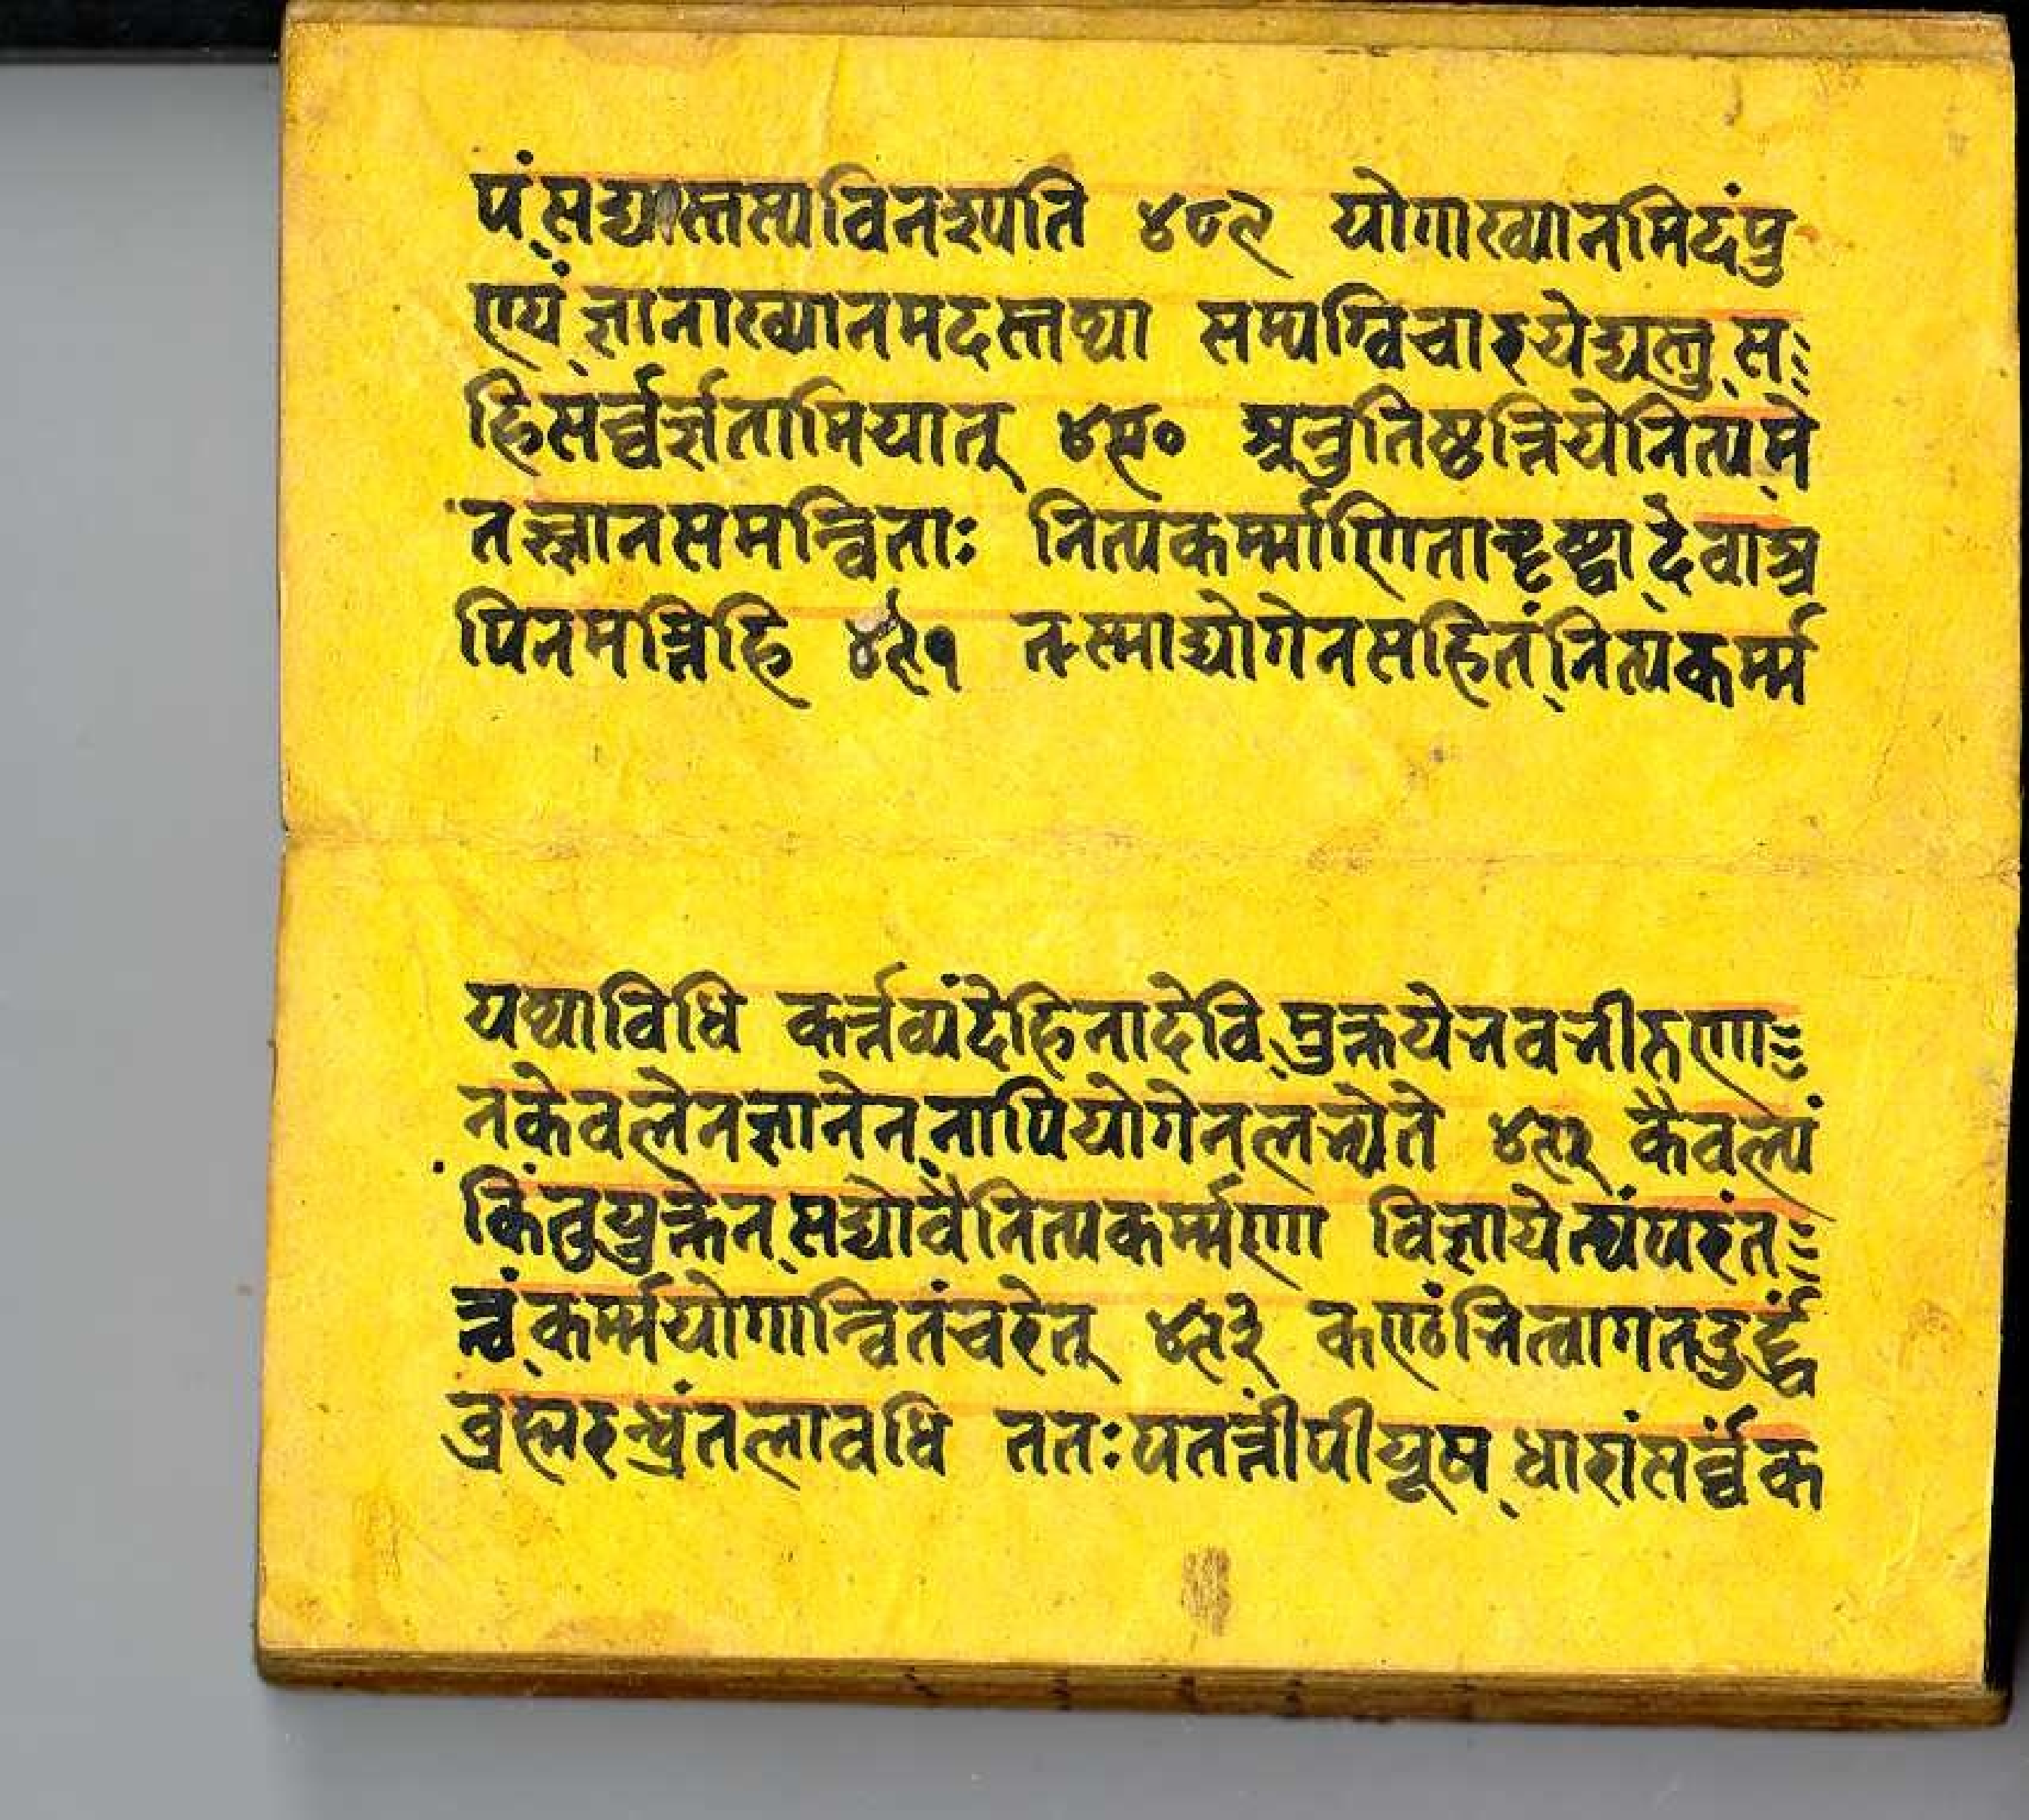 पं सद्यस्तस्य विनश्यति ४८९ योगाख्यानमिदंपु
ण्यं ज्ञानाख्यानमदस्तथा सम्यग्विचारयेद्यस्तु स
हि सर्व्वज्ञतामियात् ४९० अनुतिष्ठन्तियेनित्यमे
तज्ज्ञानसमन्विताः नित्यकर्म्माणितान्दृष्ट्वा देवाअ
पिनमन्तिहि ४९१ तस्माद्योगेनसहितं नित्यकर्म्म
यथाविधि कर्त्तव्यंदेहिनादेवि मुक्तयेभवभीरुणा
नकेवलेनज्ञानेन नापियोगेनलभ्यते ४९२ कैवल्यं
किंतुयुक्तेन सद्योवैनित्यकर्म्मणा विज्ञायेत्थंपरंत
त्त्वं कर्म्मयोगान्वितंचरेत् ४९३ कण्ठंभित्वागतदुर्द्ध
ब्रह्मरन्ध्रंतलावधि ततःपतन्तीपीयूष धारांसर्व्वक